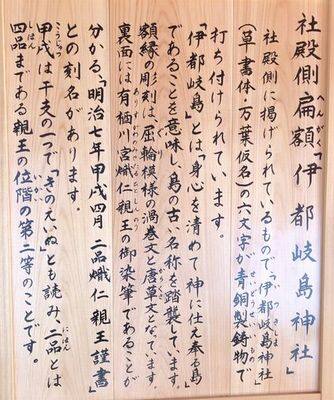 社殿側扁額「伊都岐島神社」
社殿側に掲げられているもので「伊都岐島神社」
(草書体・万葉仮名)の六文字が青銅製鋳物で
打ち付けられています。
「伊都岐島」とは「身心を清めて神に仕え奉る島」
であることを意味し、島の古い名称を踏襲しています。
額縁の彫刻は、屈輪模様の渦巻文と唐草文となっています。
裏面には有栖川宮熾仁親王の御染筆であることが
分かる「明治七年甲戌四月 二品熾仁親王謹書」
との刻名があります。
甲戌は干支の一つで「きのえいぬ」とも読み、二品とは
四品まである親王の位階の第二等のことです。